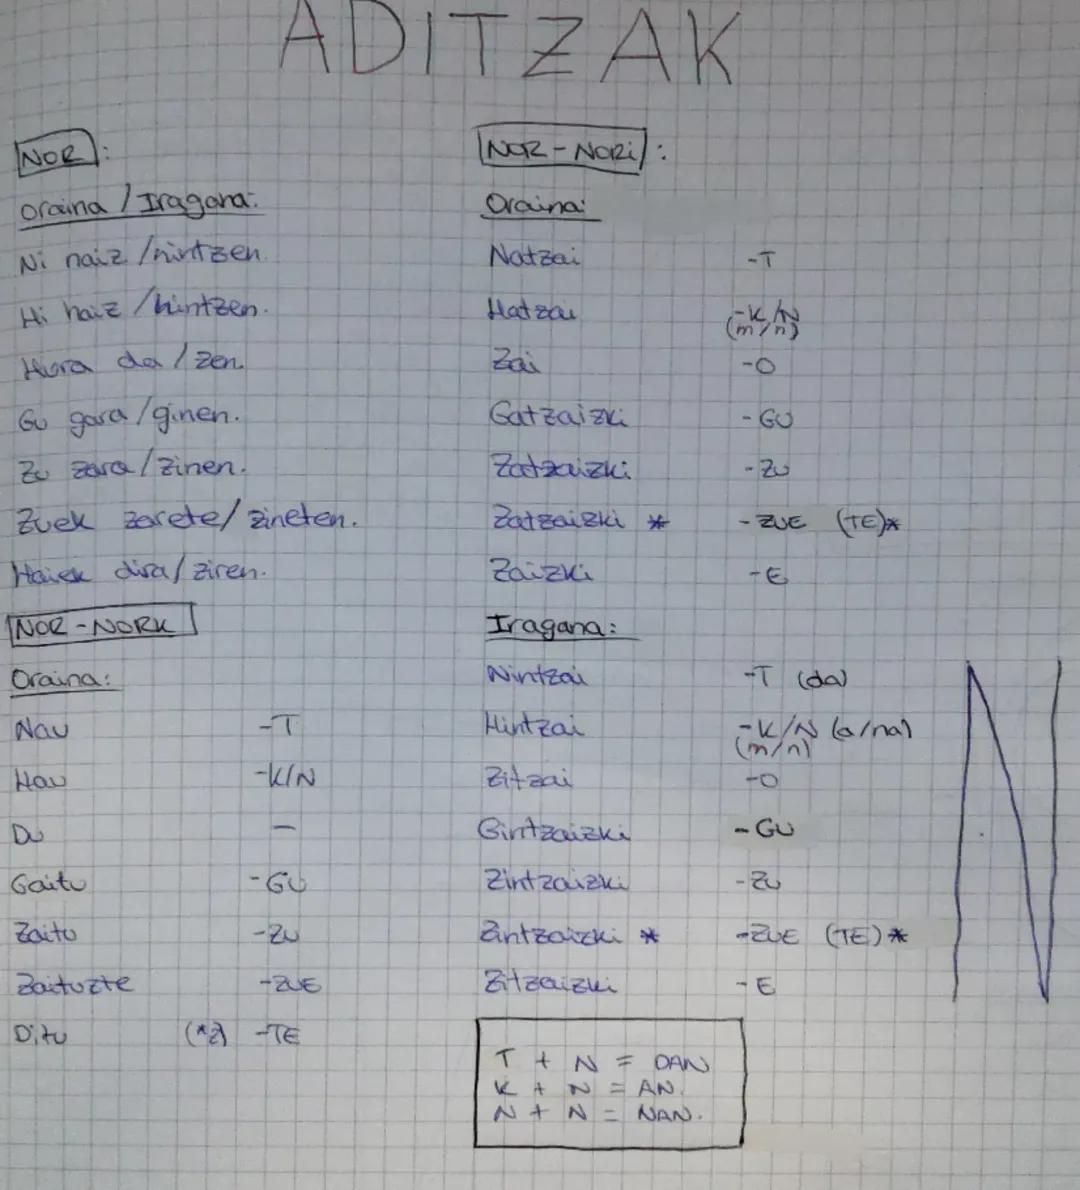 ADITZAK
NOR:
Oraina / Iragana:
Ni naiz / nintzen.
Hi haiz / hintzen.
Hura da / zen.
Gu gara / ginen.
Zu zara / zinen.
Zuek zarete / zineten.
Haiek dira / ziren.
NOR - NORK
Oraina:
Nau -T
Hau -K/N
Du —
Gaitu -GU
Zaitu -ZU
Zaituzte -ZUE
Ditu (*z) -TE
NOR - NORi:
Oraina:
Natzai -T
Hatzai -K/N
(m/n)
Zai -O
Gatzaizki -GU
Zatzaizki -ZU
Zatzaizki * -ZUE (TE)*
Zaizki -E
Iragana:
Nintzai -T (da)
Hintzai -K/N (a/na)
(m/n)
Zitzai -O
Gintzaizki -GU
Zintzaizki -ZU
Zintzaizki * -ZUE (TE)*
Zitzaizki -E
N
T + N = DAN
K + N = AN.
N + N = NAN.